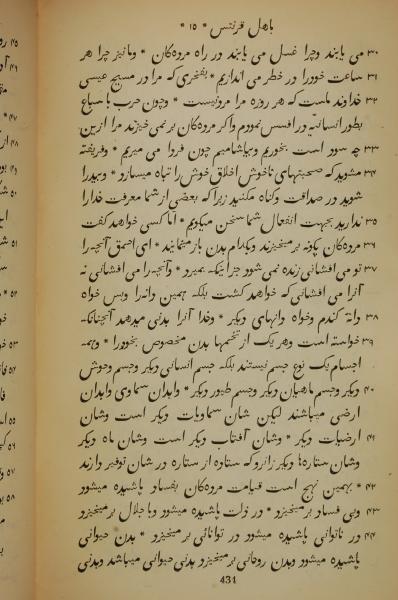 باهل قرنتس * ۱۵ *
۳۰ می یابند وچرا غسل می یابند در راه مردەکان * ومانیز چرا هر
۳۱ ساعت خودرا در خطر می اندازیم * بفخری که مرا در مسیح عیسی
۳۲ خداوند ماست که هر روزه مرا مردنیست * وچون حرب با سباع
بطور انسانیه در افسس نمودم واکر مردەکان بر نمی خیزند مرا ازین
۳۳ چه سود است بخوریم وبیاشامیم چون فردا می میریم * وفریفته
۳۴ مشوید که صحبتهای ناخوش اخلاق خوش را تباه میسازد * وبیدرا
شوید در صداقت وکناه مکنید زیرا که بعضی از شما معرفت خدارا
۳۵ ندارید بجهت انفعال شما سخن میکویم * اما کسی خواهد کفت
۳۶ مردەکان چکونه بر میخیزند وبکدام بدن باز مینمایند * ای احمق آنچه را
۳۷ تو می افشانی زنده نمی شود جز اینکه بمیرد * وآنچه را می افشانی نه
آنرا می افشانی که خواهد کشت بلکه همین دانه را وبس خواه
۳۸ دانهٔ کندم وخواه دانهای دیکر * وخدا آنرا بدنی میدهد آنچنانکه
۳۹ خواسته است وهر یک از تخمها بدن مخصوص بخودرا * وهمه
اجسام یک نوع جسم نیستند بلکه جسم انسانی دیکر وجسم وحوش
۴۰ دیکر وجسم ماهیان دیکر وجسم طیور دیکر * وابدان سماوی وابدان
ارضی میباشند لیکن شان سماویات دیکر است وشان
۴۱ ارضیات دیکر * وشان آفتاب دیکر است وشان ماه دیکر
وشان ستارەها دیکر زانرو که ستاره از ستاره در شان توفیر دارند
۴۲ * بهمین نهج است قیامت مردەکان بفساد پاشیده میشود
۴۳ وبی فساد بر میخیزد * در ذلت پاشیده میشود وبا جلال بر میخیزد
۴۴ در ناتوانی پاشیده میشود در توانائی بر میخیزد * بدن حیوانی
پاشیده میشود وبدن روحانی بر میخیزد بدنی حیوانی میباشد وبدنی
431